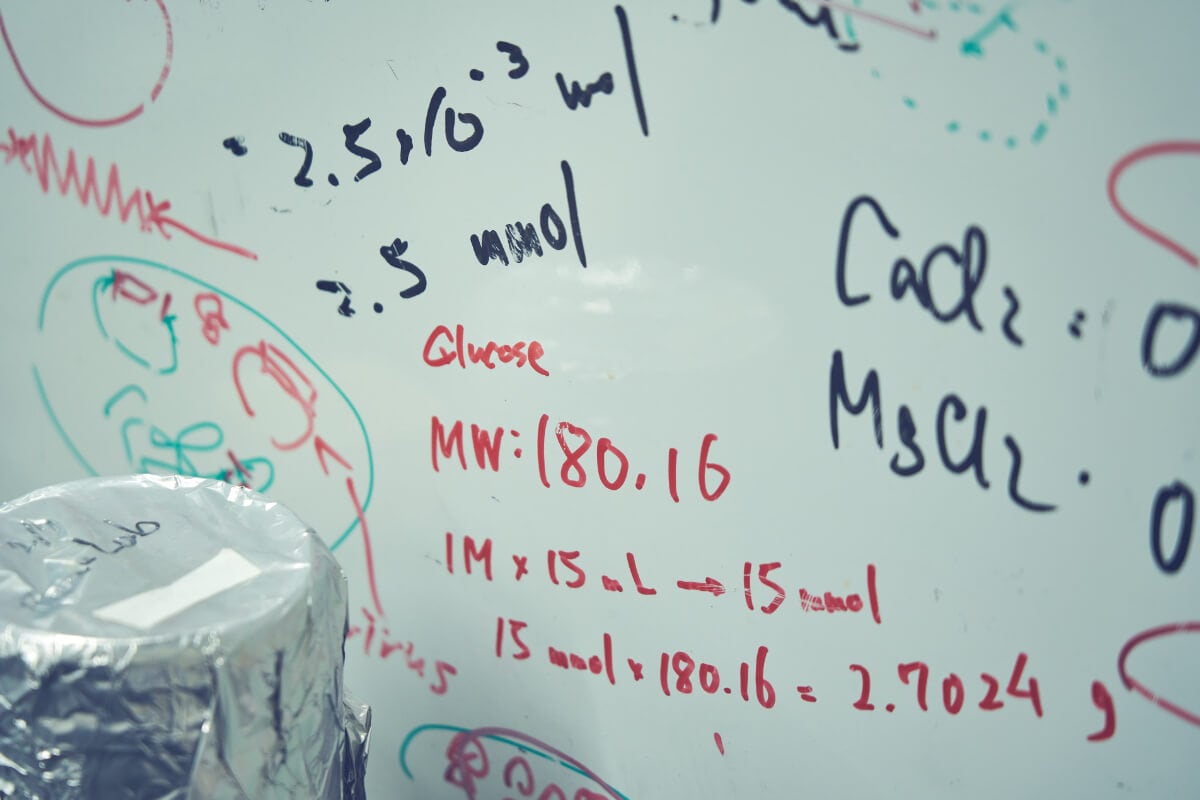 2.5×10⁻³ mol
2.5 mmol
Glucose
MW: 180.16
1M × 15 mL → 15 mmol
15 mmol × 180.16 = 2.7024 g
CaCl2: 0
MgCl2. 0
Lab
virus